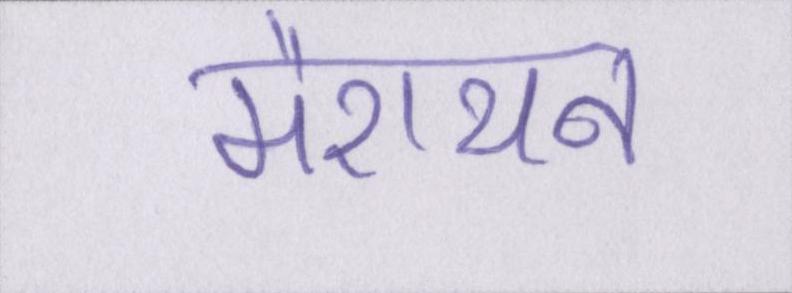 मैराथन